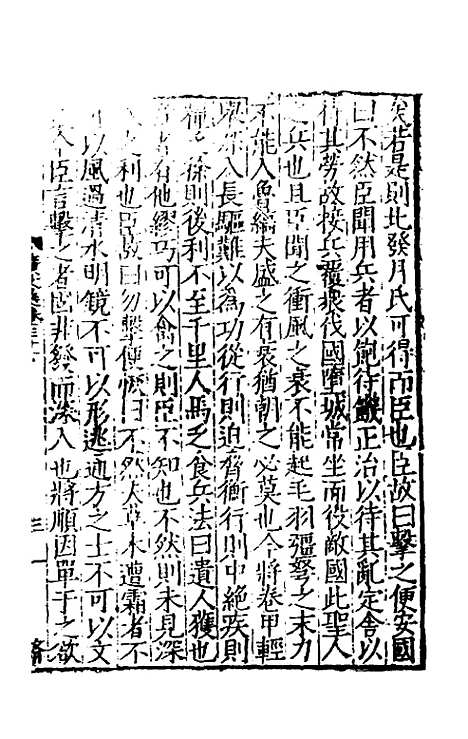 矣若是則北發月氏可得而臣也臣故曰擊之便安國
曰不然臣聞用兵者以飽待饑正治以待其亂定舍以
待其勞故接兵覆衆伐國墮城常坐而役敵國此聖人
之兵也且臣聞之衝風之衰不能起毛羽彊弩之末力
不能入魯縞夫盛之有衰猶朝之必莫也今將卷甲輕
舉深入長驅難以為功從行則迫脅衡行則中絶疾則
糧徐則後利不至千里人馬乏食兵法曰遺人獲也
者有他繆巧可以禽之則臣不知也不然則未見深
之利也臣故曰勿擊便恢曰不然夫草木遭霜者不
可以風過清水明鏡不可以形逃通方之士不可以文
今臣言擊之者固非發而深入也將順因單于之欲
三